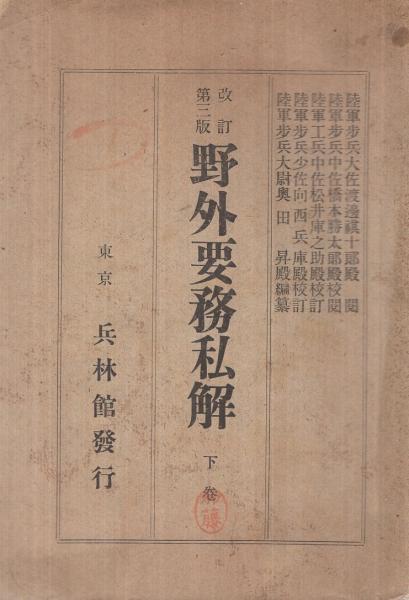 陸軍步兵大佐渡邊祺十郎殿 閱
陸軍步兵中佐橋本勝太郎殿校閱
陸軍工兵中佐松井庫之助殿校訂
陸軍步兵少佐向西兵庫殿校訂
陸軍步兵大尉奧田 昇殿編纂
改訂
第三版
野外要務私解 下卷
藤
東京 兵林館發行